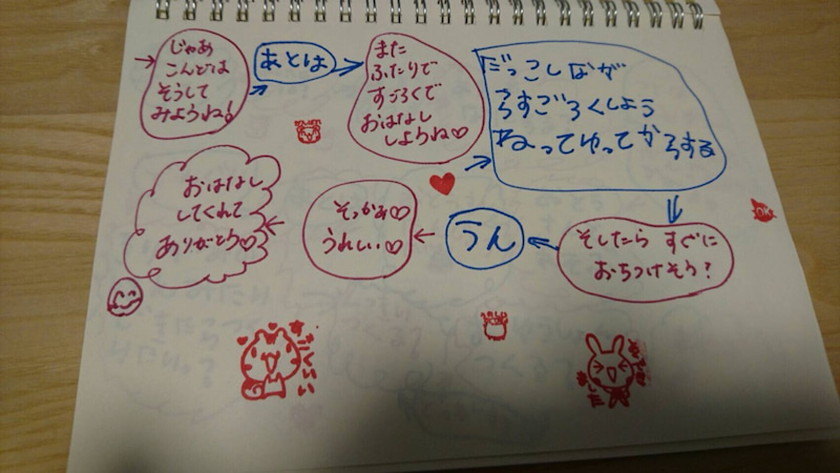 じゃあ
こんどは
そうして
みようね!
あとは
また
ふたりで
すごろくで
おはなし
しようね♡
だっこしなが
らすごろくしよう
ねってゆってからする
そしたら すぐに
おちつけそう?
うん
そっかぁ♡
うれしい♡
おはなし
してくれて
ありがとう♡
OK
すごくいい